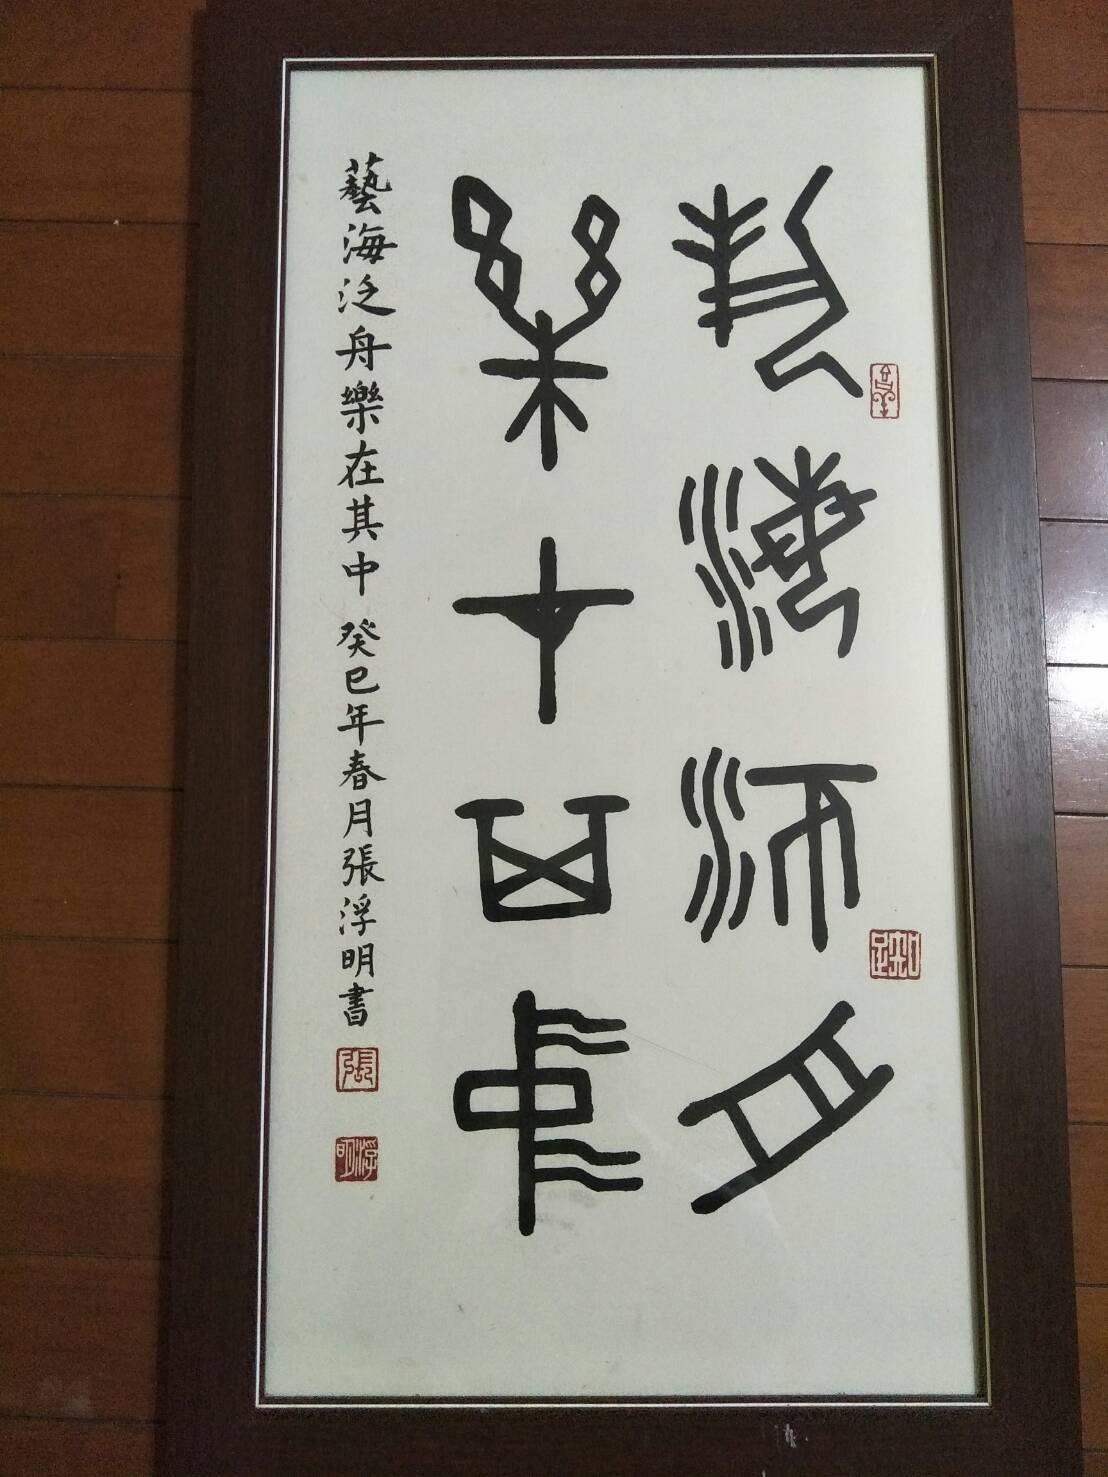 藝海泛舟
樂在其中
藝海泛舟樂在其中 癸巳年春月張浮明書
張
浮明
知足